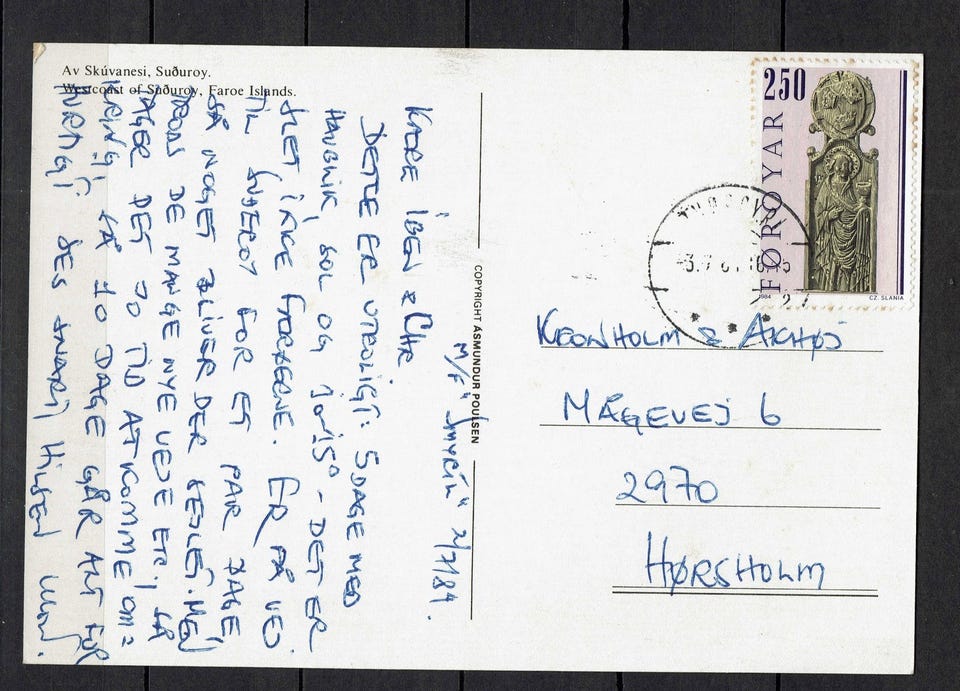 Av Skúvanesi, Suðuroy.
Westcoast of Suðuroy, Faroe Islands.
M/F "Smyril" 2/7/84.
KÆRE IBEN & CHR.
DETTE ER UTROLIGT: 5 DAGE MED
HAVBLIK, SOL OG 10/15° - DET ER
SLET IKKE FÆRØERNE. ER PÅ VEJ
TIL SUDERØ FOR ET PAR DAGE
SÅ NOGET BLIVER DER SEJLET. MEN
TRODS DE MANGE NYE VEJE ETC., SÅ
TAGER DET JO TID AT KOMME OM=
KRING, SÅ 10 DAGE GÅR ALT FOR
HURTIGT. SES SNART, HILSEN
COPYRIGHT ÁSMUNDUR POULSEN
250
FØROYAR
1984
CZ. SLANIA
KRONHOLM & AKHØJ
MÅGEVEJ 6
2970
HØRSHOLM